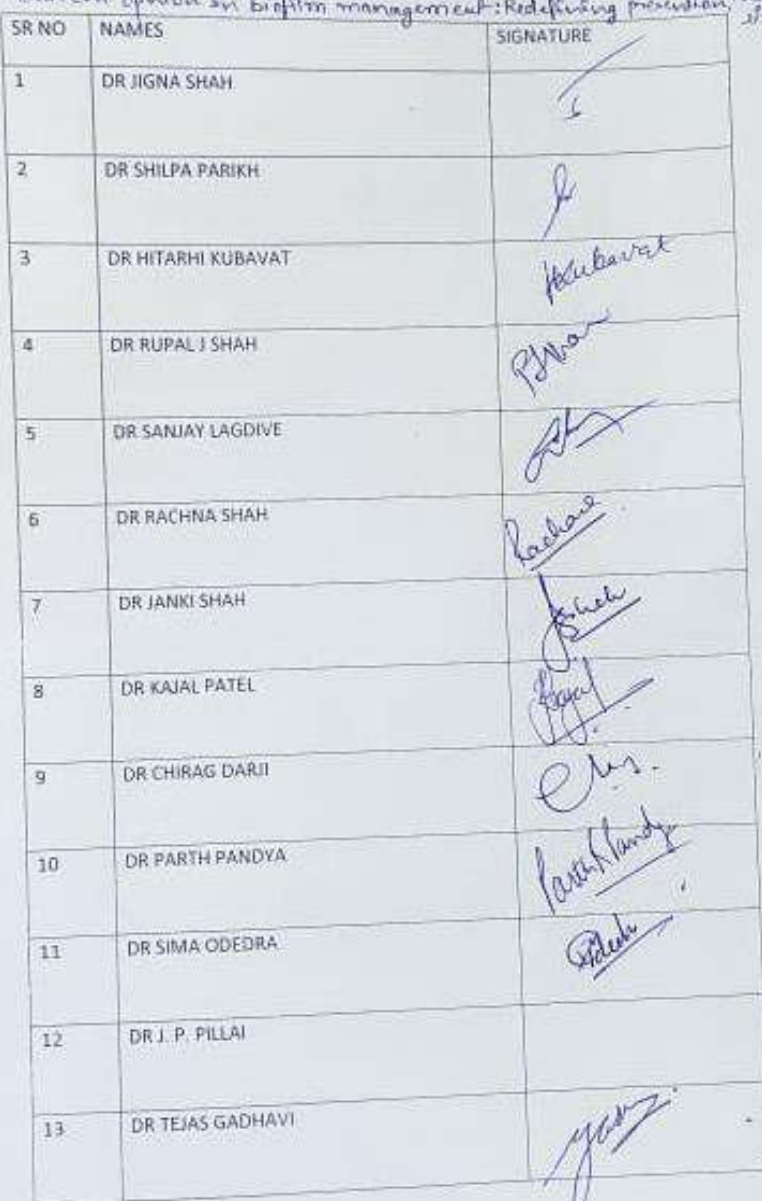 in biofilm management: Redefining prevention,
SR NO NAMES SIGNATURE
1 DR JIGNA SHAH
2 DR SHILPA PARIKH
3 DR HITARHI KUBAVAT HKubavat
4 DR RUPAL J SHAH
5 DR SANJAY LAGDIVE
6 DR RACHNA SHAH
7 DR JANKI SHAH
8 DR KAJAL PATEL Kajal
9 DR CHIRAG DARJI
10 DR PARTH PANDYA
11 DR SIMA ODEDRA
12 DR J. P. PILLAI
13 DR TEJAS GADHAVI